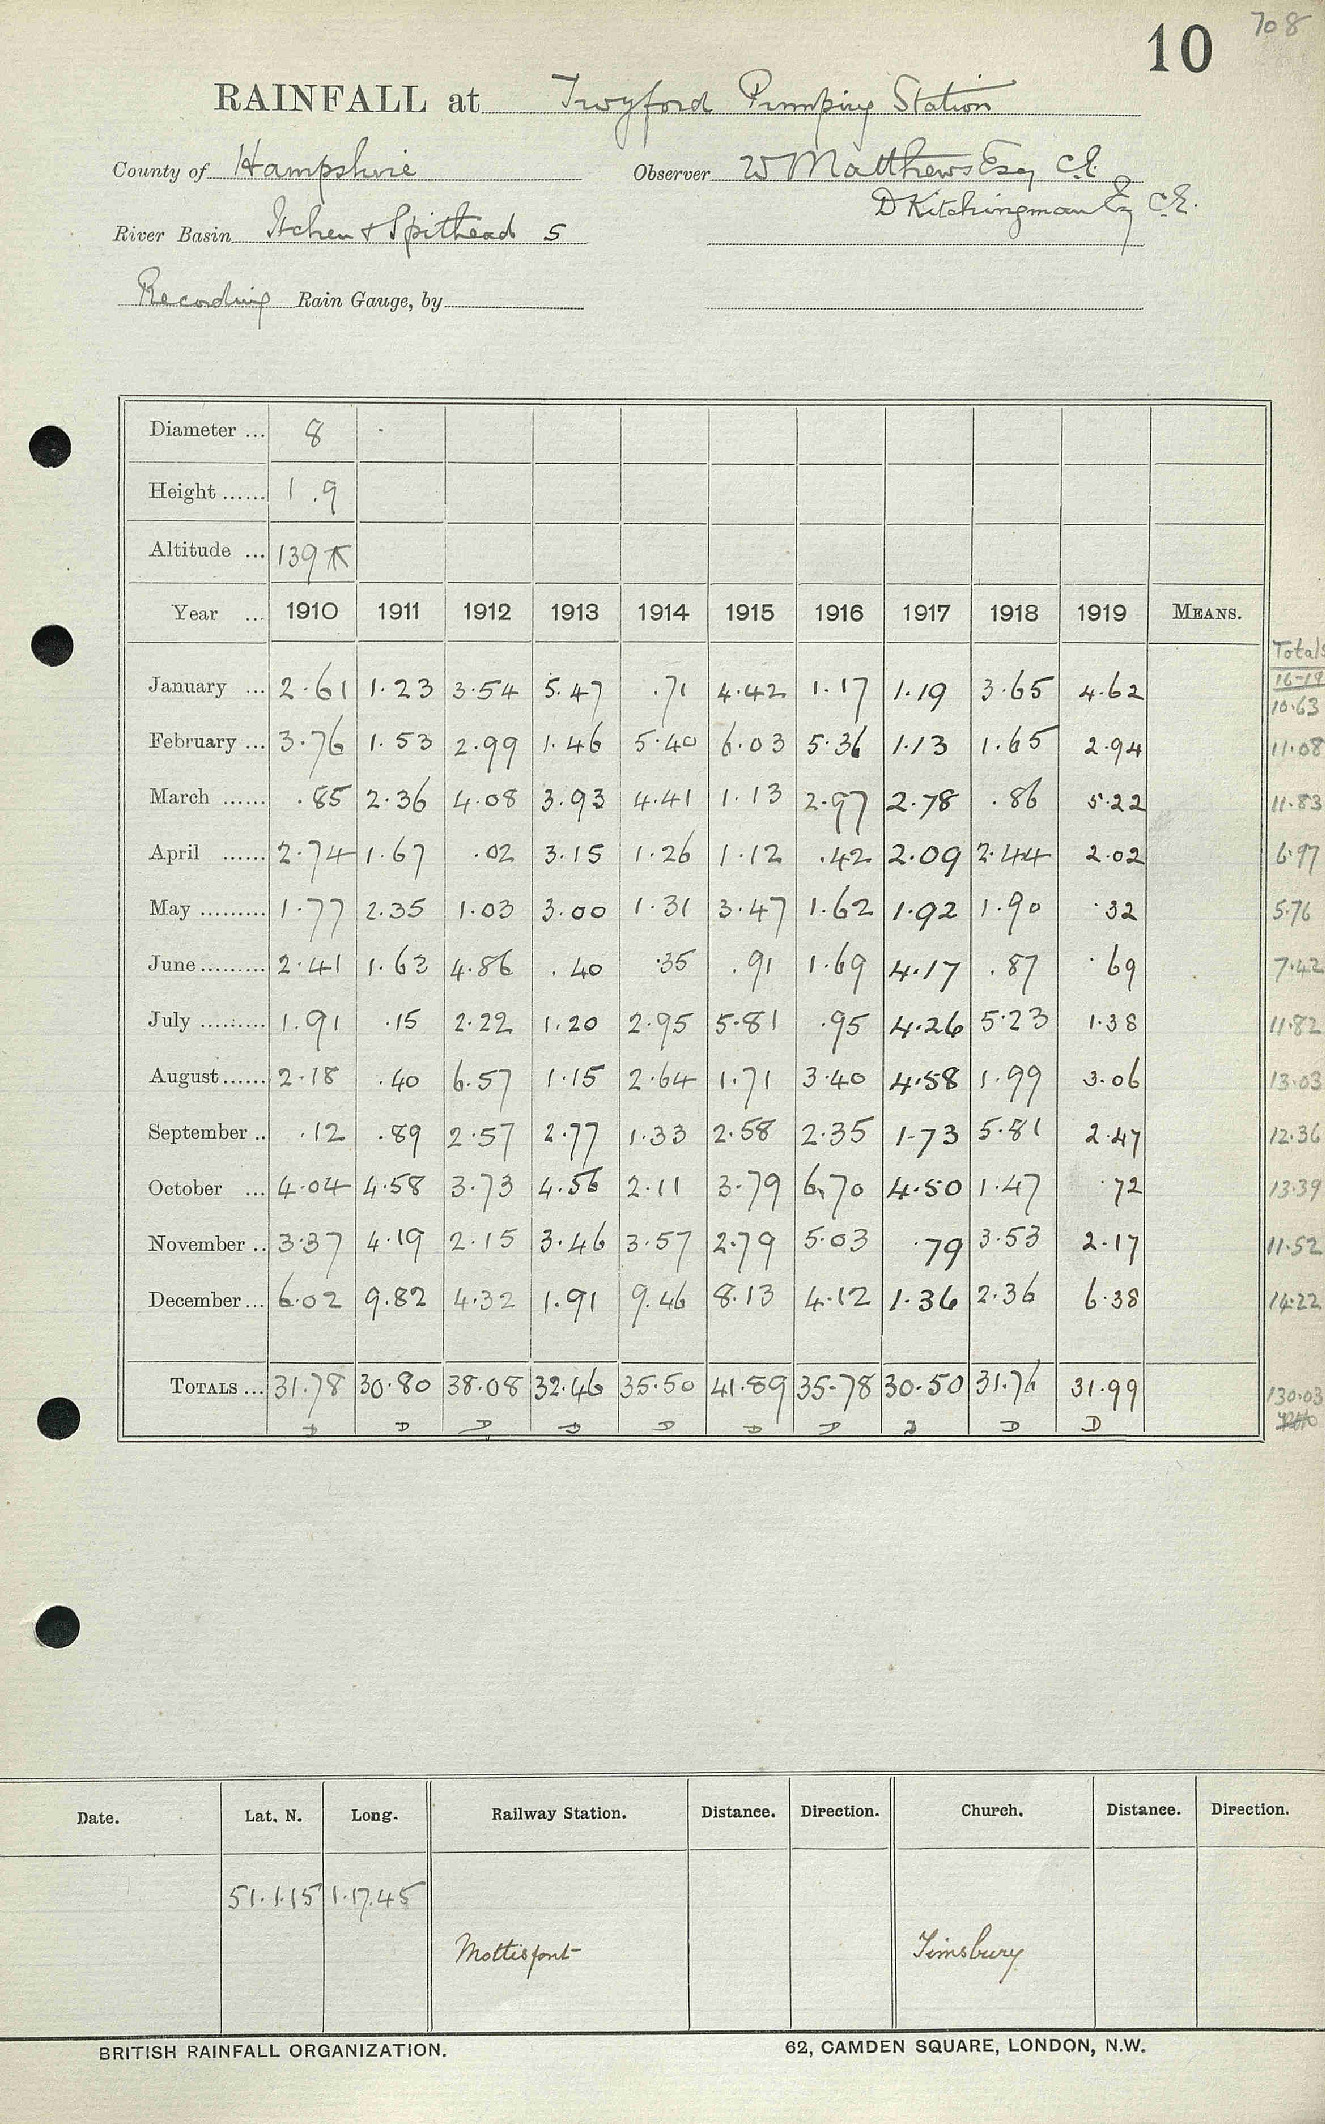 708
10
RAINFALL at Twyford Pumping Station
County of Hampshire Observer W Matthews Esq C.E.
D Kitchingman Esq C.E.
River Basin Itchen & Spithead 5
Recording Rain Gauge, by
Diameter ... 8
Height ...... 1.9
Altitude ... 139
Year ... 1910 1911 1912 1913 1914 1915 1916 1917 1918 1919 MEANS.
Totals
16-19
January ... 2.61 1.23 3.54 5.47 .71 4.42 1.17 1.19 3.65 4.62 10.63
February ... 3.76 1.53 2.99 1.46 5.40 6.03 5.36 1.13 1.65 2.94 11.08
March ...... .85 2.36 4.08 3.93 4.41 1.13 2.97 2.78 .86 5.22 11.83
April ...... 2.74 1.67 .02 3.15 1.26 1.12 .42 2.09 2.44 2.02 6.97
May ......... 1.77 2.35 1.03 3.00 1.31 3.47 1.62 1.92 1.90 .32 5.76
June ......... 2.41 1.63 4.86 .40 .35 .91 1.69 4.17 .87 .69 7.42
July ......... 1.91 .15 2.22 1.20 2.95 5.81 .95 4.26 5.23 1.38 11.82
August ...... 2.18 .40 6.57 1.15 2.64 1.71 3.40 4.58 1.99 3.06 13.03
September .. .12 .89 2.57 2.77 1.33 2.58 2.35 1.73 5.81 2.47 12.36
October ... 4.04 4.58 3.73 4.56 2.11 3.79 6.70 4.50 1.47 .72 13.39
November .. 3.37 4.19 2.15 3.46 3.57 2.79 5.03 .79 3.53 2.17 11.52
December ... 6.02 9.82 4.32 1.91 9.46 8.13 4.12 1.36 2.36 6.38 14.22
TOTALS ... 31.78 30.80 38.08 32.46 35.50 41.89 35.78 30.50 31.76 31.99 130.03
D D D D D D D D D D
Date. Lat. N. Long. Railway Station. Distance. Direction. Church. Distance. Direction.
51.1.15 1.17.45
Mottisfont Timsbury
BRITISH RAINFALL ORGANIZATION. 62, CAMDEN SQUARE, LONDON, N.W.